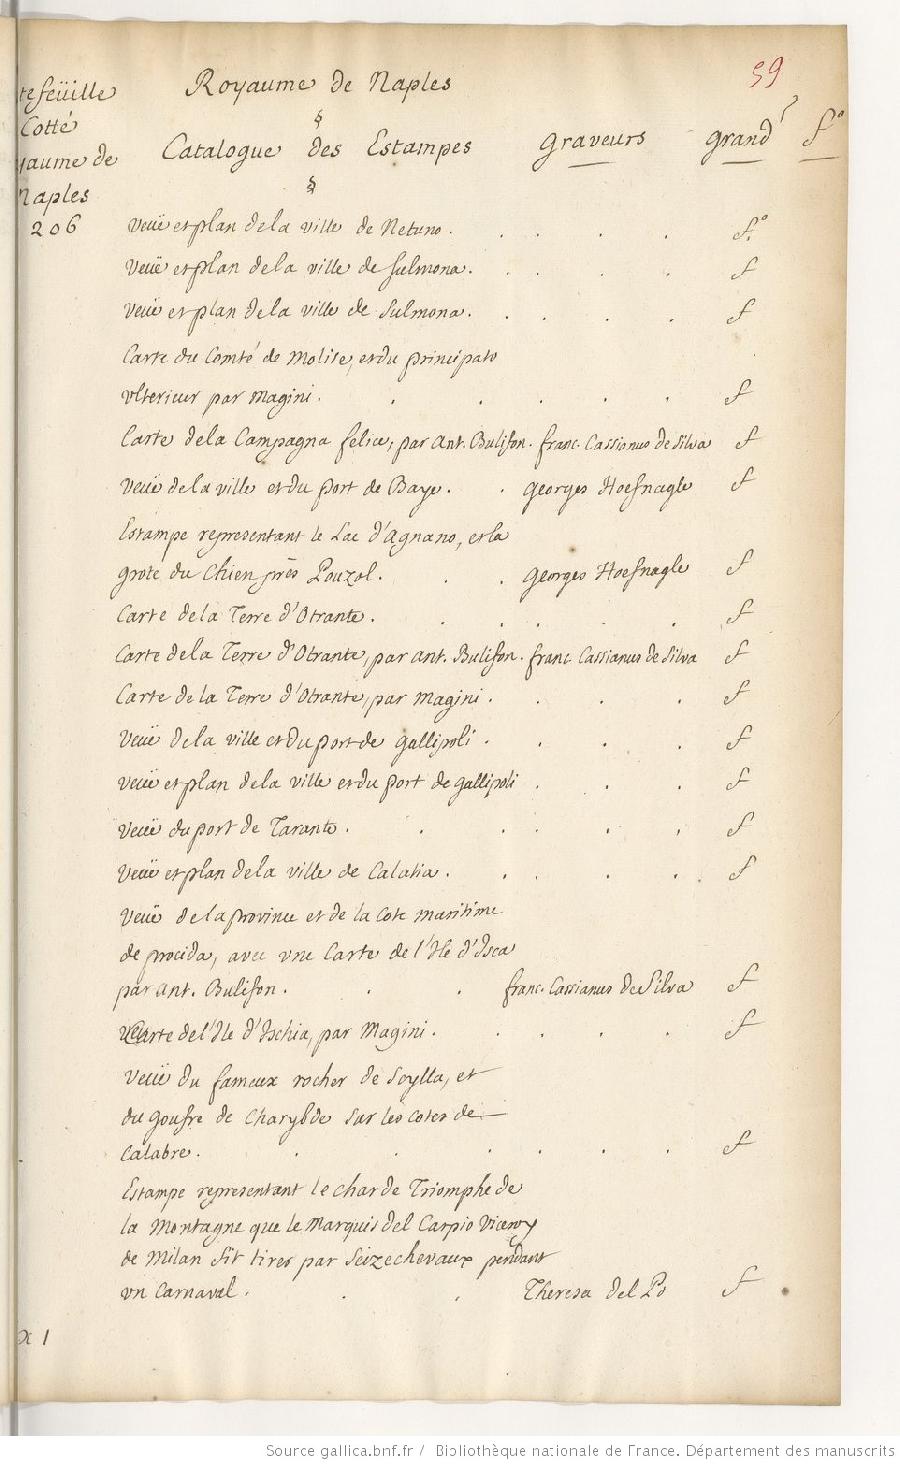 59
tefeüille
Cotté
yaume de
Naples
206
Royaume de Naples
§
Catalogue des Estampes Graveurs Grand.r f.o
§
Veuë et plan de la ville de Netuno. f.o
Veuë et plan de la ville de Sulmona. f
Veuë et plan de la ville de Sulmona. f
Carte du Comté de Molise, et du principato
vlterieur par Magini. f
Carte de la Campagna felice, par Ant. Bulifon. franc. Cassianus de Silva f
Veuë de la ville et du port de Baye. Georges Hoefnagle f
Estampe representant le Lac d'Agnano, et la
grote du Chien près Pouzol. Georges Hoefnagle f
Carte de la Terre d'Otrante. f
Carte de la Terre d'Otrante, par Ant. Bulifon. franc. Cassianus de Silva f
Carte de la Terre d'Otrante, par Magini. f
Veuë de la ville et du port de Gallipoli. f
Veuë et plan de la ville et du port de Gallipoli f
Veuë du port de Tarante. f
Veuë et plan de la ville de Calatia. f
Veuë de la province et de la cote maritime
de procida, avec vne Carte de l'Ile d'Isca
par Ant. Bulifon. franc. Cassianus de Silva f
Carte de l'Ile d'Ischia, par Magini. f
Veuë du fameux rocher de Scylla, et
du goufre de Charybde sur les cotes de
Calabre. f
Estampe representant le char de Triomphe de
la Montagne que le Marquis del Carpio Viceroy
de Milan fit tirer par seize chevaux pendant
vn Carnaval. Theresa del Po f
x 1
Source gallica.bnf.fr / Bibliothèque nationale de France. Département des manuscrits